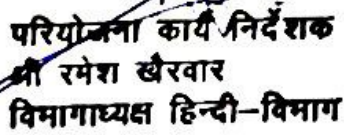 परियोजना कार्य निर्देशक
श्री रमेश खैरवार
विभागाध्यक्ष हिन्दी-विभाग